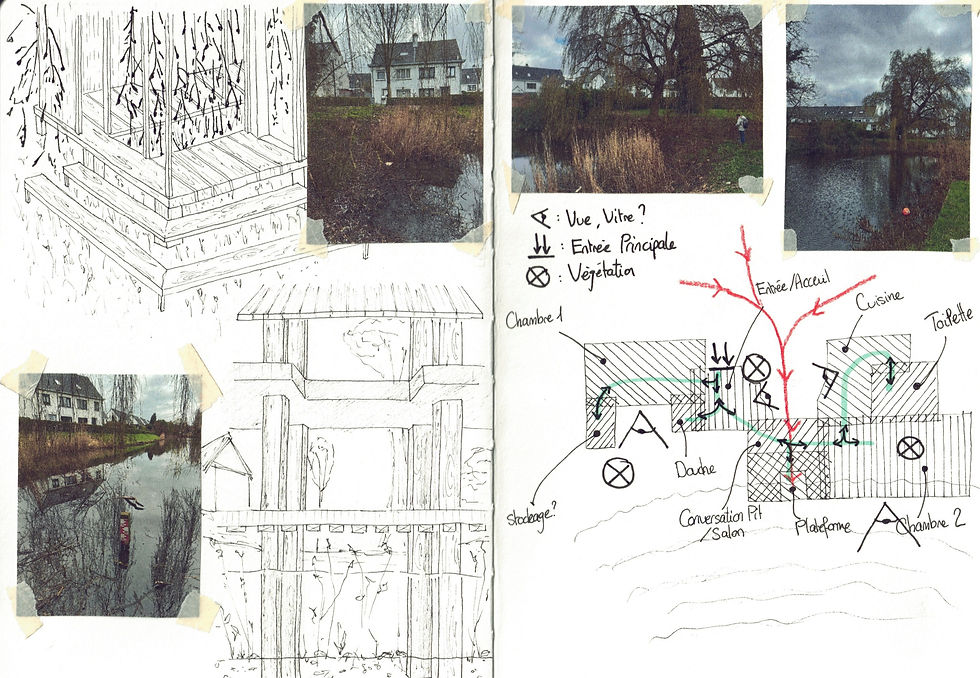 : Vue, Vitre ?
: Entrée Principale
: Végétation
Entrée/Acceuil
Chambre 1
Cuisine
Toilette
Douche
Stockage?
Conversation Pit
/Salon
Plateforme
Chambre 2